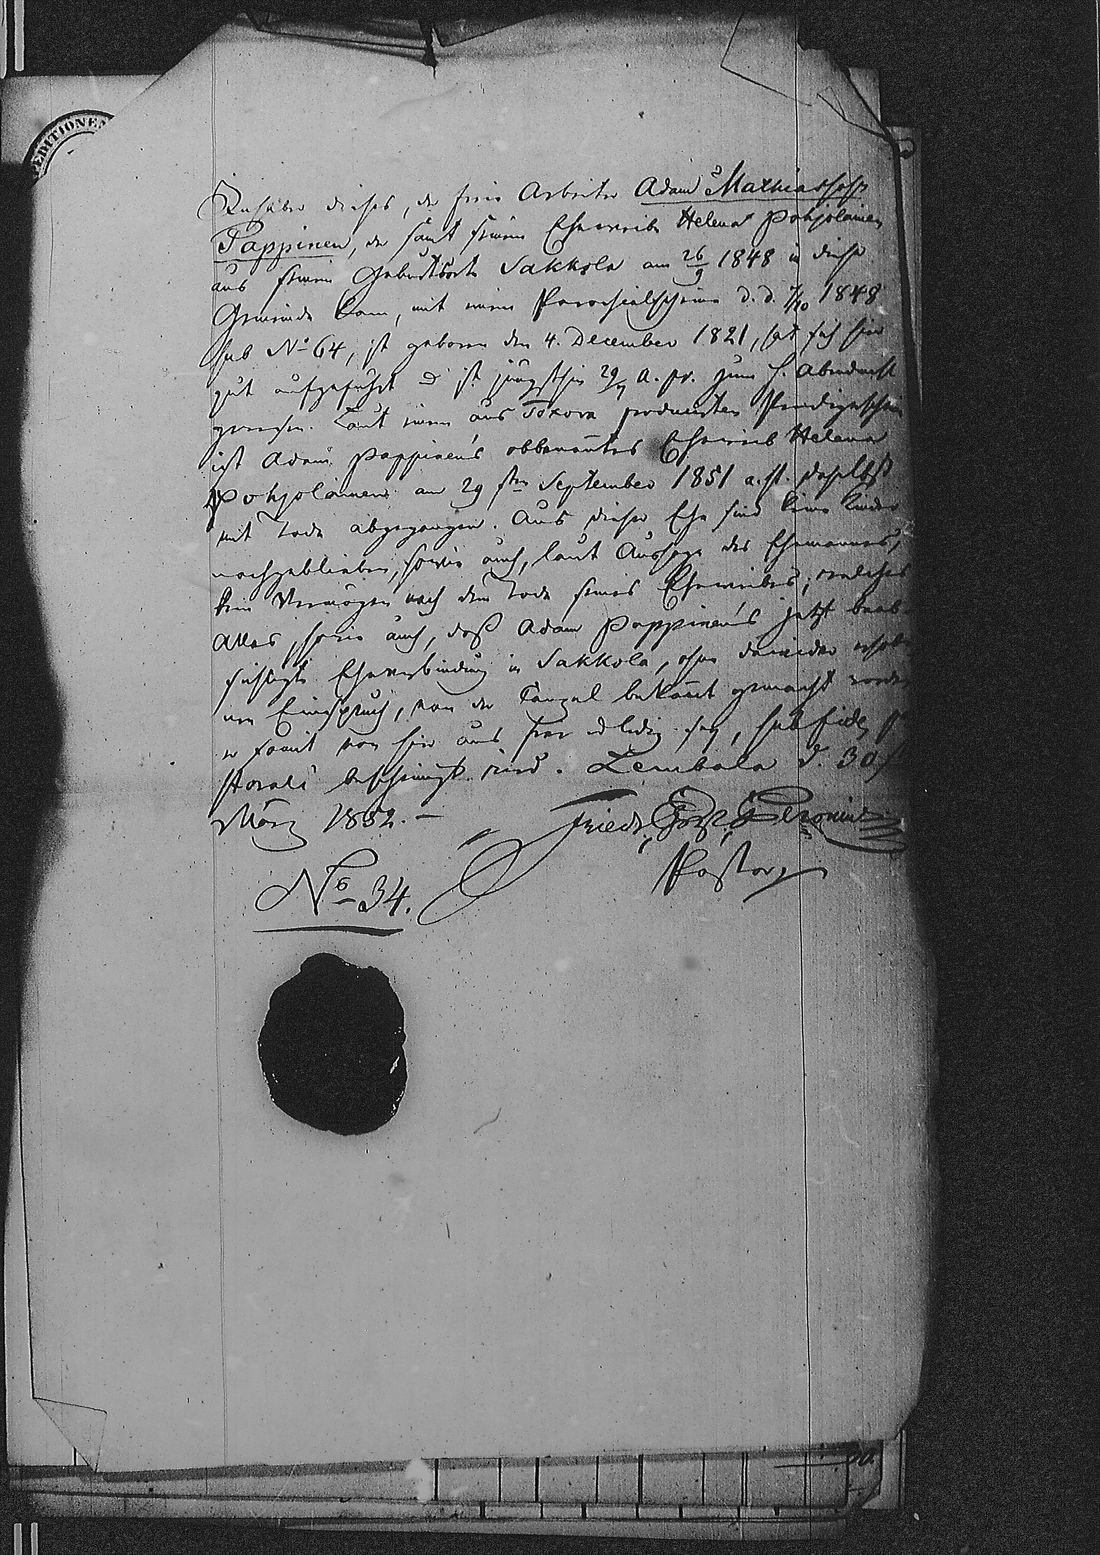 EDITIONEN
Inhaber dieses, der freie Arbeiter Adam Mathiassohn
Pappinen, der samt seinem Eheweibe Helena Pohjolainen
aus seinem Geburtsorte Sakkola am 26/9 1848 in diese
Gemeinde kam, mit einem Parochialscheine d. d. 7/10 1848
sub No 64, ist geboren den 4. December 1821, hat sich hier
gut aufgeführt u ist jüngsthin a. pr. zum h. Abendmahl
gewesen. Laut einem aus producirten
ist Adam Pappinen's obbenanntes Eheweib Helena
Pohjolainen am 29sten September 1851 a. st. daselbst
mit Tode abgegangen. Aus dieser Ehe sind keine Kinder
nachgeblieben, sowie auch, laut Aussage des Ehemannes,
kein Vermögen nach dem Tode seines Eheweibes, welches
Alles, sowie auch, daß Adam Pappinen's jetzt beab-
sichtigte Eheverbindung in Sakkola, ohne dawider erhobe-
nen Einspruch, von der Canzel bekannt gemacht worden
er somit von hier aus frei u ledig sey, sub fide pa-
storali bescheinigt wird. Lembala d. 30
März 1852. —
Friedr.
Pastor
No 34.